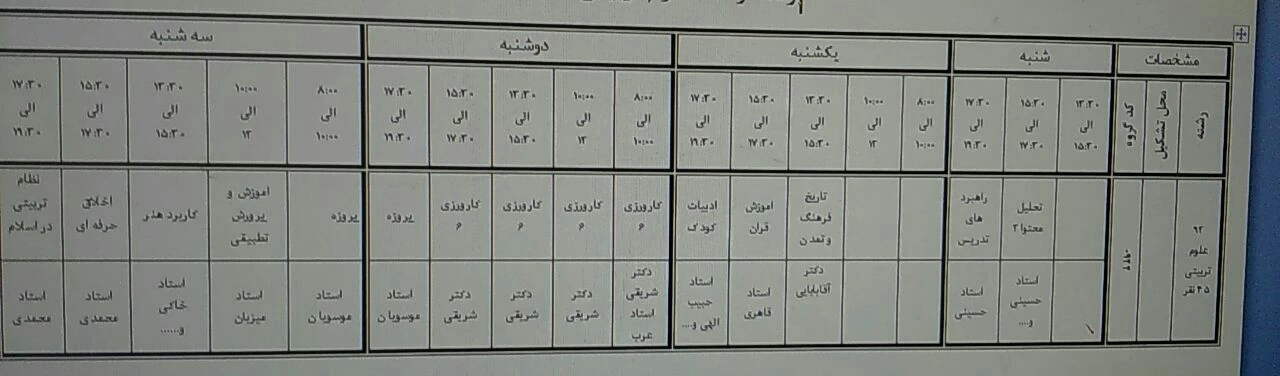 مشخصات
شنبه
یکشنبه
دوشنبه
سه شنبه
رشته
محل تشکیل
کد گروه
۱۳:۳۰ الی ۱۵:۳۰
۱۵:۳۰ الی ۱۷:۳۰
۱۷:۳۰ الی ۱۹:۳۰
۸:۰۰ الی ۱۰:۰۰
۱۰:۰۰ الی ۱۲
۱۳:۳۰ الی ۱۵:۳۰
۱۵:۳۰ الی ۱۷:۳۰
۱۷:۳۰ الی ۱۹:۳۰
۸:۰۰ الی ۱۰:۰۰
۱۰:۰۰ الی ۱۲
۱۳:۳۰ الی ۱۵:۳۰
۱۵:۳۰ الی ۱۷:۳۰
۱۷:۳۰ الی ۱۹:۳۰
۸:۰۰ الی ۱۰:۰۰
۱۰:۰۰ الی ۱۲
۱۳:۳۰ الی ۱۵:۳۰
۱۵:۳۰ الی ۱۷:۳۰
۱۷:۳۰ الی ۱۹:۳۰
۹۲
علوم
تربیتی
۴۵ نفر
تحلیل
محتوا ۲
راهبرد
های
تدریس
تاریخ
فرهنگ
وتمدن
اموزش
قران
ادبیات
کودک
کارورزی
۶
کارورزی
۶
کارورزی
۶
کارورزی
۶
پروژه
پروژه
اموزش و
پرورش
تطبیقی
کاربرد هنر
اخلاق
حرفه ای
نظام
تربیتی
در اسلام
استاد
حسینی
و....
استاد
حسینی
دکتر
آقابابایی
استاد
قاهری
استاد
حبیب
الهی و....
دکتر
شریفی
استاد
عرب
دکتر
شریفی
دکتر
شریفی
دکتر
شریفی
استاد
موسویان
استاد
موسویان
استاد
میزبان
استاد
خاکی
و......
استاد
محمدی
استاد
محمدی